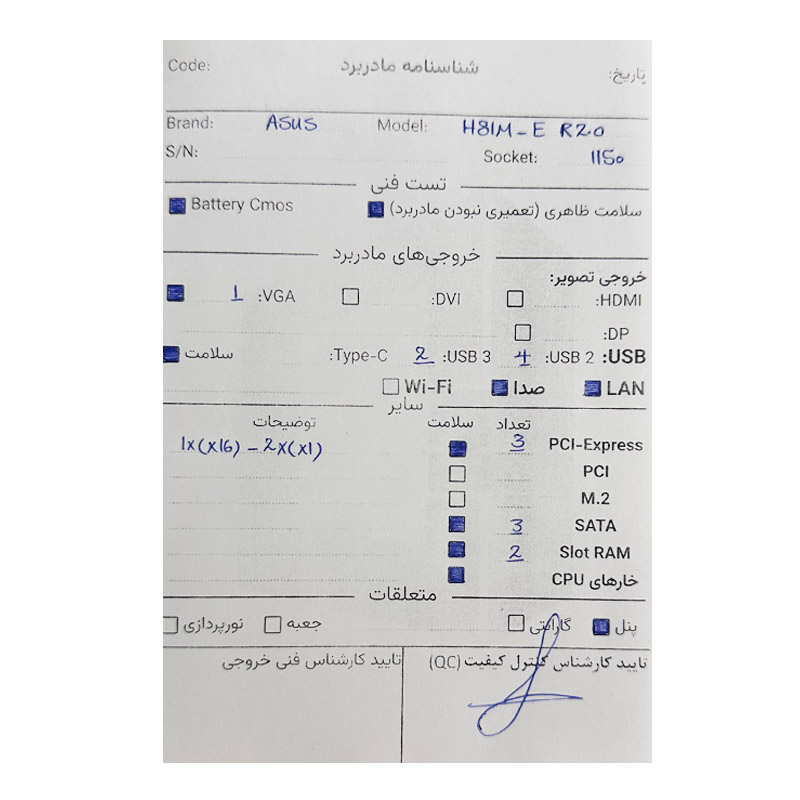 تاریخ: شناسنامه مادربرد Code:
Brand: ASUS Model: H81M-E R2.0
S/N: Socket: 1150
تست فنی
سلامت ظاهری (تعمیری نبودن مادربرد) Battery Cmos
خروجی‌های مادربرد
خروجی تصویر:
HDMI: DVI: VGA: 1
DP:
USB: USB 2: 4 USB 3: 2 Type-C: سلامت
LAN صدا Wi-Fi
سایر
تعداد سلامت توضیحات
PCI-Express 3 1x(x16) - 2x(x1)
PCI
M.2
SATA 3
Slot RAM 2
خارهای CPU
متعلقات
پنل گارانتی جعبه نورپردازی
تایید کارشناس کنترل کیفیت (QC) تایید کارشناس فنی خروجی